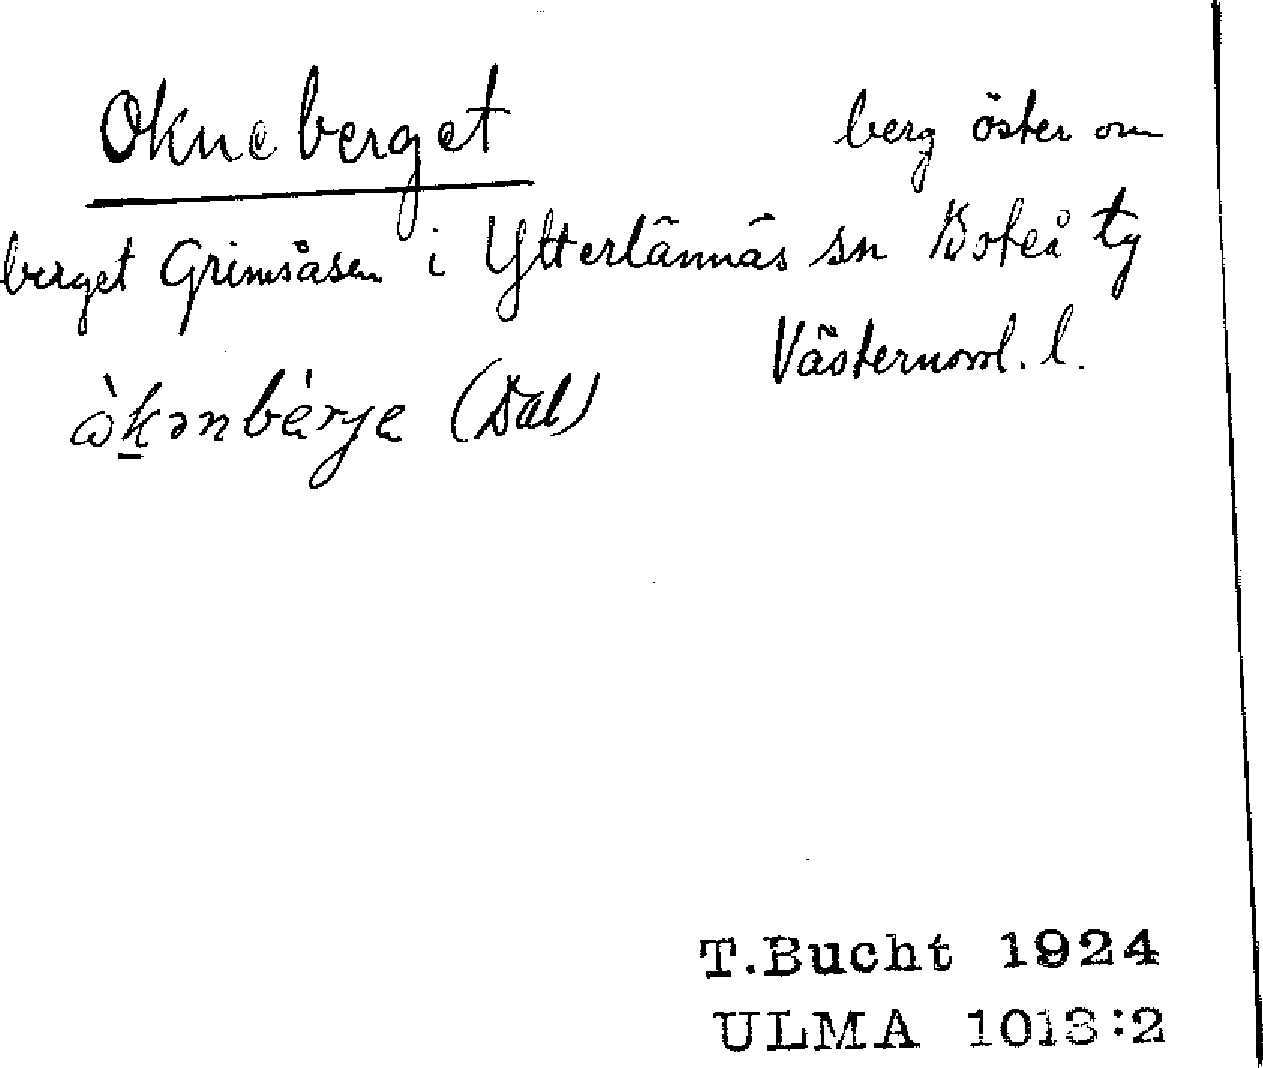 Okneberget berg öster om
berget Grimsåsen i Ytterlännäs sn Boteå tg
Västernorrl. l.
(Dal)
T.Bucht 1924
ULMA 1018:2